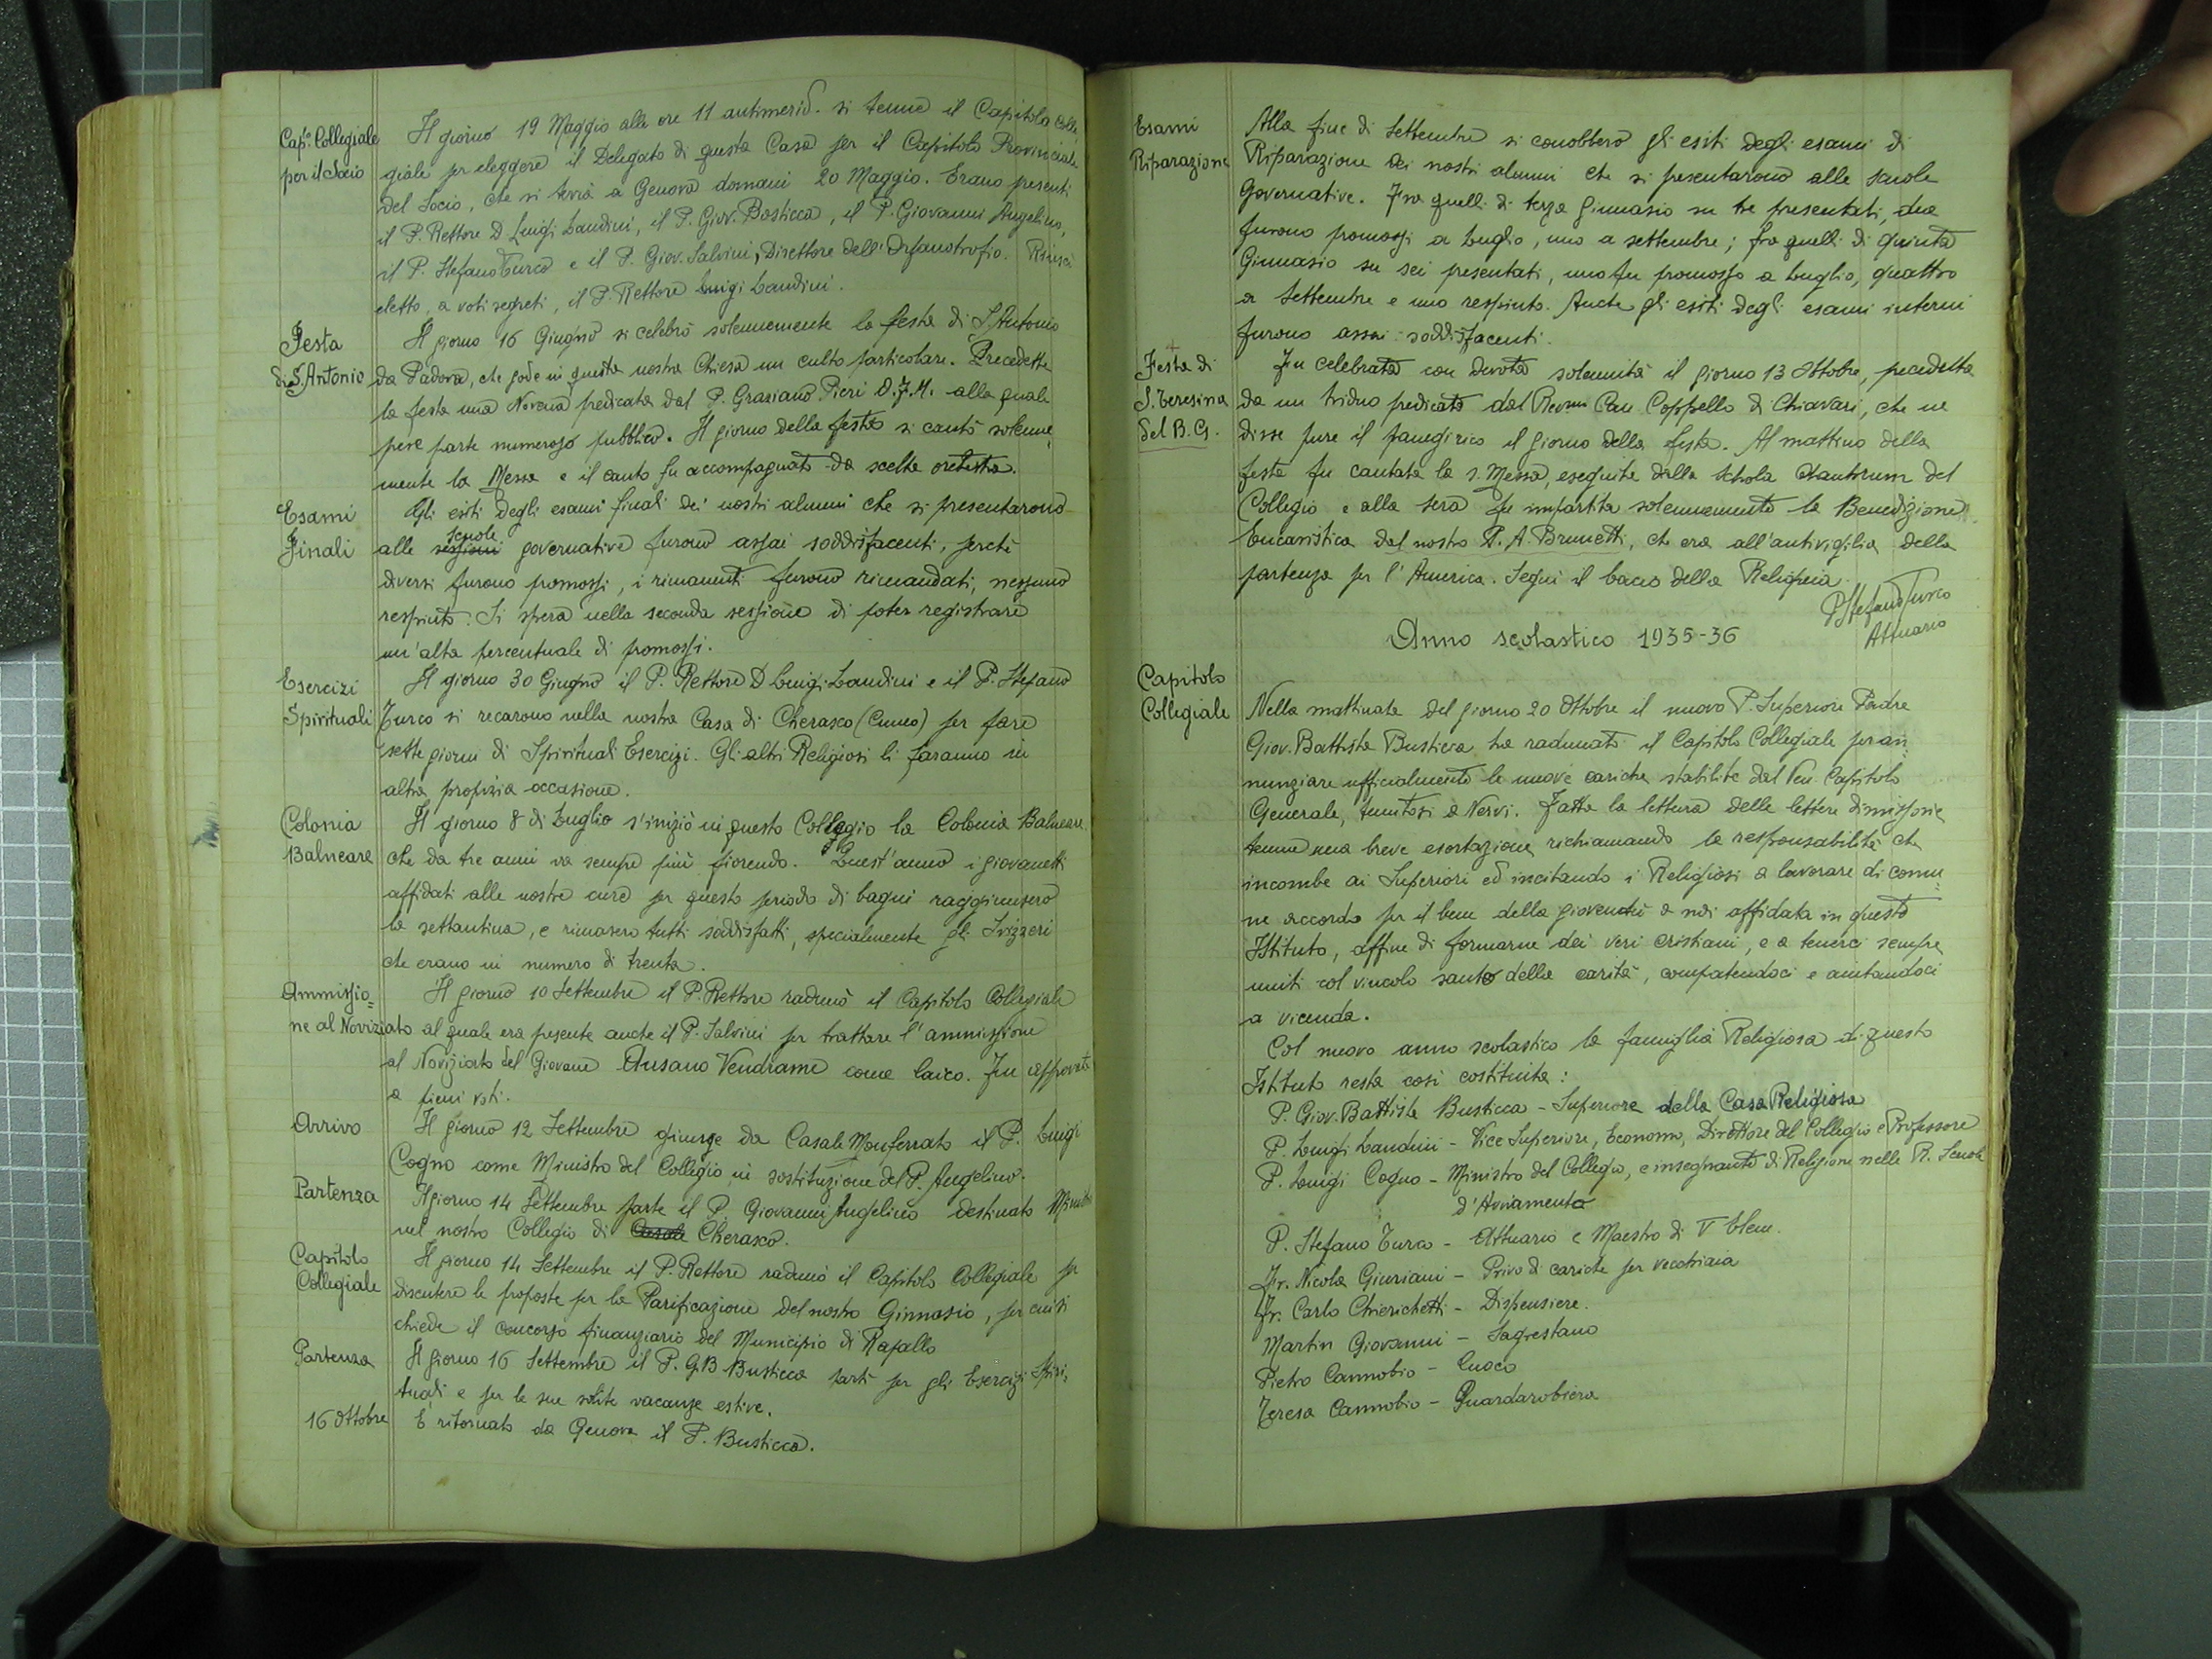 Cap.lo Collegiale
per il Socio
Il giorno 19 Maggio alle ore 11 antimerid. si tenne il Capitolo Colle
giale per eleggere il Delegato di questa Casa per il Capitolo Provinciale
del Socio, che si terrà a Genova domani 20 Maggio. Erano presenti
il P. Rettore D. Luigi Landini, il P. Giov. Busticca, il P. Giovanni Angelino,
il P. Stefano Turco e il P. Giov. Salvini, Direttore dell'Orfanotrofio. Riuscì
eletto, a voti segreti, il P. Rettore Luigi Landini.
Festa
di S. Antonio
Il giorno 16 Giugno si celebrò solennemente la festa di S. Antonio
da Padova, che gode in questa nostra Chiesa un culto particolare. Precedette
la festa una Novena predicata dal P. Graziano Pieri O.F.M. alla quale
prese parte numeroso pubblico. Il giorno della festa si cantò solenne
mente la Messa e il canto fu accompagnato da scelta orchestra.
Esami
Finali
Gli esiti degli esami finali dei nostri alunni che si presentarono
scuole
alle sessioni governative furono assai soddisfacenti, perchè
diversi furono promossi, i rimanenti furono rimandati, nessuno
respinto. Si spera nella seconda sessione di poter registrare
un'alta percentuale di promossi.
Esercizi
Spirituali
Il giorno 30 Giugno il P. Rettore D Luigi Landini e il P. Stefano
Turco si recarono nella nostra Casa di Cherasco (Cuneo) per fare
sette giorni di Spirituali Esercizi. Gli altri Religiosi li faranno in
altra propizia occasione.
Colonia
Balneare
Il giorno 8 di Luglio s'iniziò in questo Collegio la Colonia Balneare
che da tre anni va sempre più fiorendo. Quest'anno i giovanetti
affidati alle nostre cure per questo periodo di bagni raggiunsero
la settantina, e rimasero tutti soddisfatti, specialmente gli Svizzeri
che erano in numero di trenta.
Ammissio=
ne al Noviziato
Il giorno 10 Settembre il P. Rettore radunò il Capitolo Collegiale
al quale era presente anche il P. Salvini per trattare l'ammissione
al Noviziato del Giovane Ausano Vendrame come laico. Fu approvato
a pieni voti.
Arrivo
Il giorno 12 Settembre giunge da Casale Monferrato il P. Luigi
Cogno come Ministro del Collegio in sostituzione del P. Angelino.
Partenza
Il giorno 14 Settembre parte il P. Giovanni Angelino destinato Ministro
nel nostro Collegio di Casale Cherasco.
Capitolo
Collegiale
Il giorno 14 Settembre il P. Rettore radunò il Capitolo Collegiale per
discutere le proposte per la Parificazione del nostro Ginnasio, per cui si
chiede il concorso finanziario del Municipio di Rapallo
Partenza
Il giorno 16 Settembre il P. G.B Busticca partì per gli Esercizi Spiri,
tuali e per le sue solite vacanze estive.
16 Ottobre
E ritornato da Genova il P. Busticca.
Esami
Riparazione
Alla fine di Settembre si conobbero gli esiti degli esami di
Riparazione dei nostri alunni che si presentarono alle scuole
Governative. Fra quelli di terza ginnasio su tre presentati, due
furono promossi a luglio, uno a settembre; fra quelli di quinta
Ginnasio su sei presentati, uno fu promosso a luglio, quattro
a Settembre e uno respinto. Anche gli esiti degli esami interni
furono assai soddisfacenti.
Festa di
S. Teresina
del B.G.
Fu celebrata con devota solennità il giorno 13 Ottobre, preceduta
da un triduo predicato dal Revmo Can Coppello di Chiavari, che ne
disse pure il panegirico il giorno della festa. Al mattino della
festa fu cantata la s. Messa, eseguita dalla Schola Chantrum del
Collegio e alla sera fu impartita solennemente la Benedizione
Eucaristica dal nostro P. A. Brunetti, che era all'antivigilia della
partenza per l'America. Seguì il bacio della Reliquia
P Stefano Turco
Attuario
Anno scolastico 1935-36
Capitolo
Collegiale
Nella mattinata del giorno 20 Ottobre il nuovo P. Superiore Padre
Giov. Battista Busticca ha radunato il Capitolo Collegiale per an
nunziare ufficialmente le nuove cariche stabilite dal Ven. Capitolo
Generale, tenutosi a Nervi. Fatta la lettura delle lettere dimissorie
tenne una breve esortazione richiamando la responsabilità che
incombe ai Superiori ed incitando i Religiosi a lavorare di comu
ne accordo per il bene della gioventù a noi affidata in questo
Istituto, affine di formarne dei veri cristiani, e a tenerci sempre
uniti col vincolo santo della carità, compatendoci e aiutandoci
a vicenda.
Col nuovo anno scolastico la famiglia Religiosa di questo
Istituto resta così costituita:
P. Giov. Battista Busticca - Superiore della Casa Religiosa
P. Luigi Landini - Vice Superiore, Economo, Direttore del Collegio e Professore
P. Luigi Cogno - Ministro del Collegio, e insegnante di Religione nelle R. Scuole
d'Avviamento
P. Stefano Turco - Attuario e Maestro di V Elem.
Fr. Nicola Giuriani - Privo di cariche per vecchiaia
Fr. Carlo Chierichetti - Dispensiere.
Martin Giovanni - Sagrestano
Pietro Cannobio - Cuoco
Teresa Cannobio - Guardarobiera